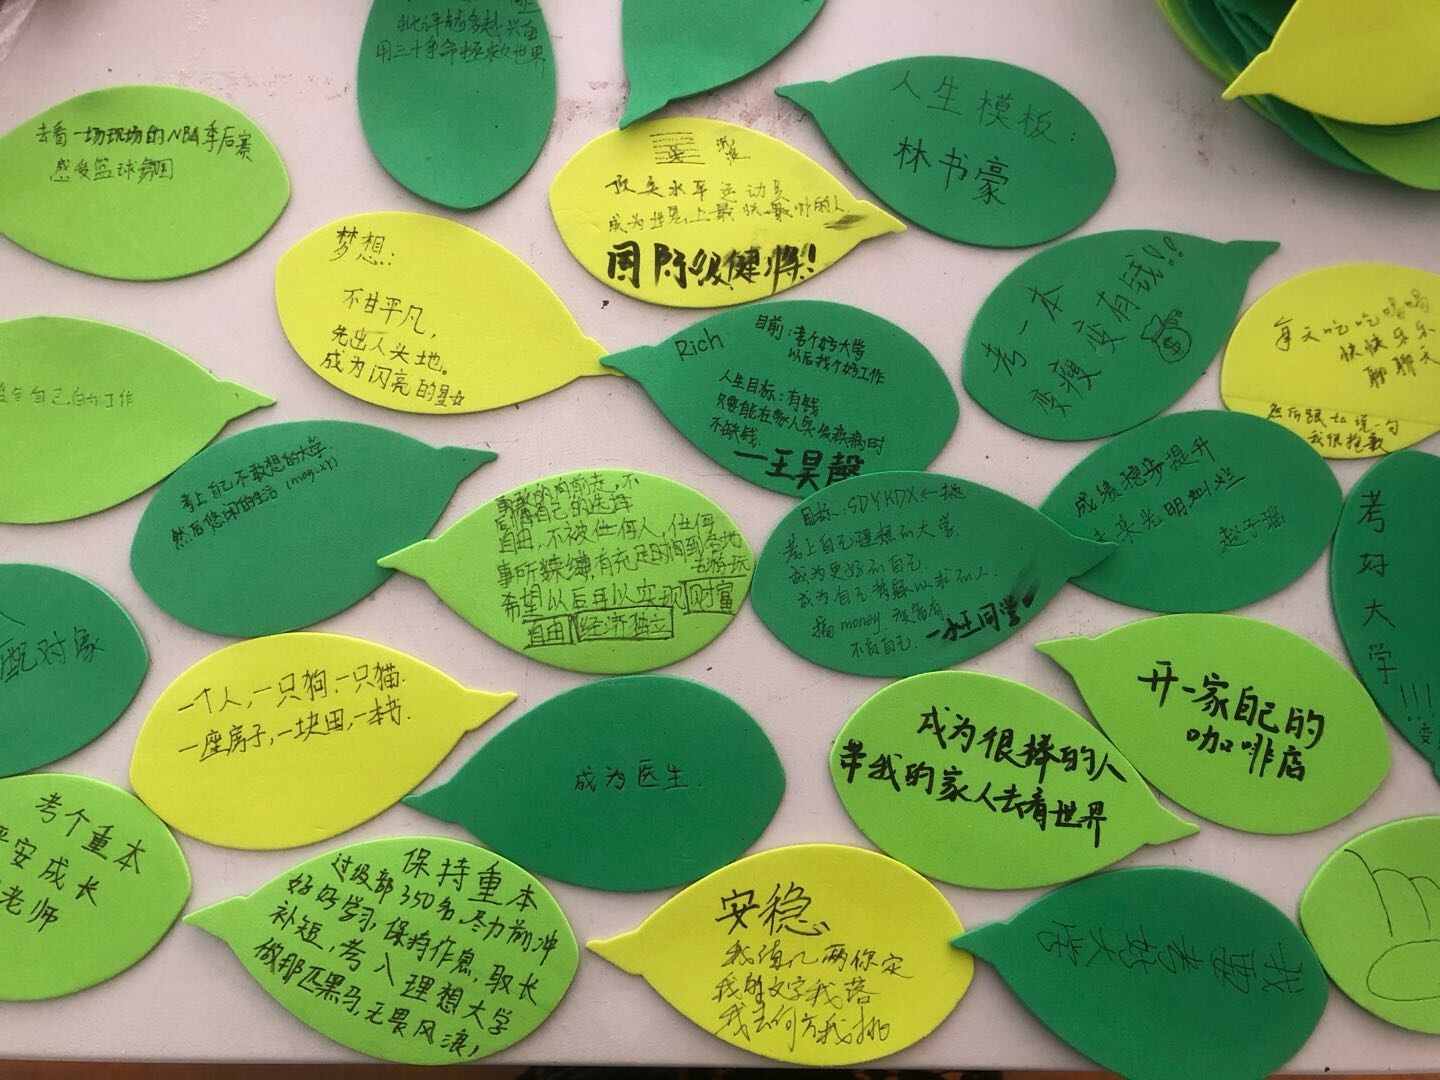 批评越多越兴奋
用三十条命拯救世界
人生模板：
林书豪
去看一场现场的NBA季后赛
感受篮球氛围
沉淀
顶尖水平运动员
成为世界上最快最帅的人
国际级健将！
梦想：
不甘平凡，
先出人头地。
成为闪亮的星☆
Rich
目前：考个好大学
以后找个好工作
人生目标：有钱
只要能在家人突发疾病时
不缺钱.
—王昊馨
考一本
变瘦变有钱!!
$
每天吃吃喝喝
快快乐乐
聊聊天
然后跟
说一句
我很抱歉
自己的工作
考上自己不敢想的大学.
然后悠闲的生活 (money..y)
勇敢的向前走，不
后悔自己的选择
自由，不被任何人，任何
事所束缚，有充足时间到各地
去游玩
希望以后可以实现财富
自由 经济独立
目标：SDYKDX
考上自己理想的大学.
成为更好的自己.
成为自己梦寐以求的人.
搞money
不负自己.
同学
成绩稳步提升
未来光明灿烂
赵子瑶
考好大学!!!
配对象
一个人，一只狗，一只猫.
一座房子，一块田，一本书.
成为医生.
成为很棒的人
带我的家人去看世界
开一家自己的
咖啡店
考个重本
平安成长
老师
保持重本
过级部350名，尽力前冲
好好学习，保持作息，取长
补短，考入理想大学
做那匹黑马，无畏风浪，
安稳、
我值几两你定
我的文字我落
我去何方我挑
我要考好大学